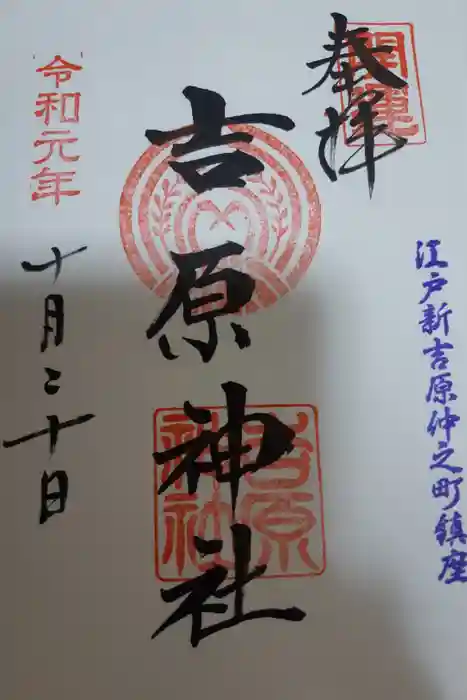 奉拝
開運
江戸新吉原仲之町鎮座
吉原神社
吉原神社
令和元年
十月二十日